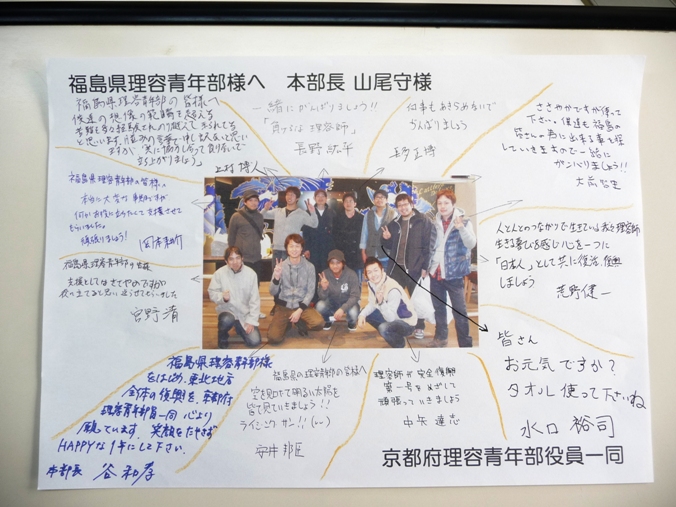 福島県理容青年部様へ 本部長 山尾守様
福島県理容青年部の皆様へ
僕達の想像の範疇を超える
共に協力しあって負けないで
立ち上がりましょう！
上村 博人
一緒にがんばりましょう！！
「負けるな理容師」
長野
何事もあきらめないで
がんばりましょう
ささやかですが使って
下さい。僕達も福島の
皆さんの為に出来る事を探
していきますので一緒に
ガンバリましょう！！
福島県理容青年部の皆様へ
本当に大変な事態ですが
何かお役に立てればと支援させて
もらいました。
頑張りましょう！
福島県理容青年部の皆様
支援としてはささやかですが
役に立てると思い送らせてもらいました
宮野 清
人と人とのつながりで生きている我々理容師
生きる喜びを感じ心を一つに
「日本人」として共に復活、復興
しましょう
荒野健一
皆さん
お元気ですか？
タオル使って下さいね
水口 裕司
福島県理容青年部様
をはじめ、東北地方
全体の復興を、京都府
理容青年部員一同 心より
願っています。笑顔をたやさず
HAPPYな1年にして下さい。
本部長 谷 和孝
福島県の理容青年部の皆様へ
空を見上げて明るい太陽を
皆で見ていきましょう！！
ライジングサン！！
安井 邦臣
理容師が完全復興
第一号をめざして
頑張っていきましょう
中矢 達志
京都府理容青年部役員一同